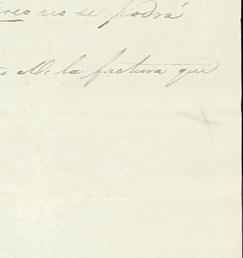 no se podrá
la factura que